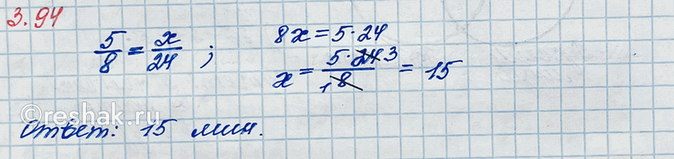 3.94
5/8 = x/24 ; 8x = 5·24
x = 5·24 3 / 1 8 = 15
Ответ: 15 мин.